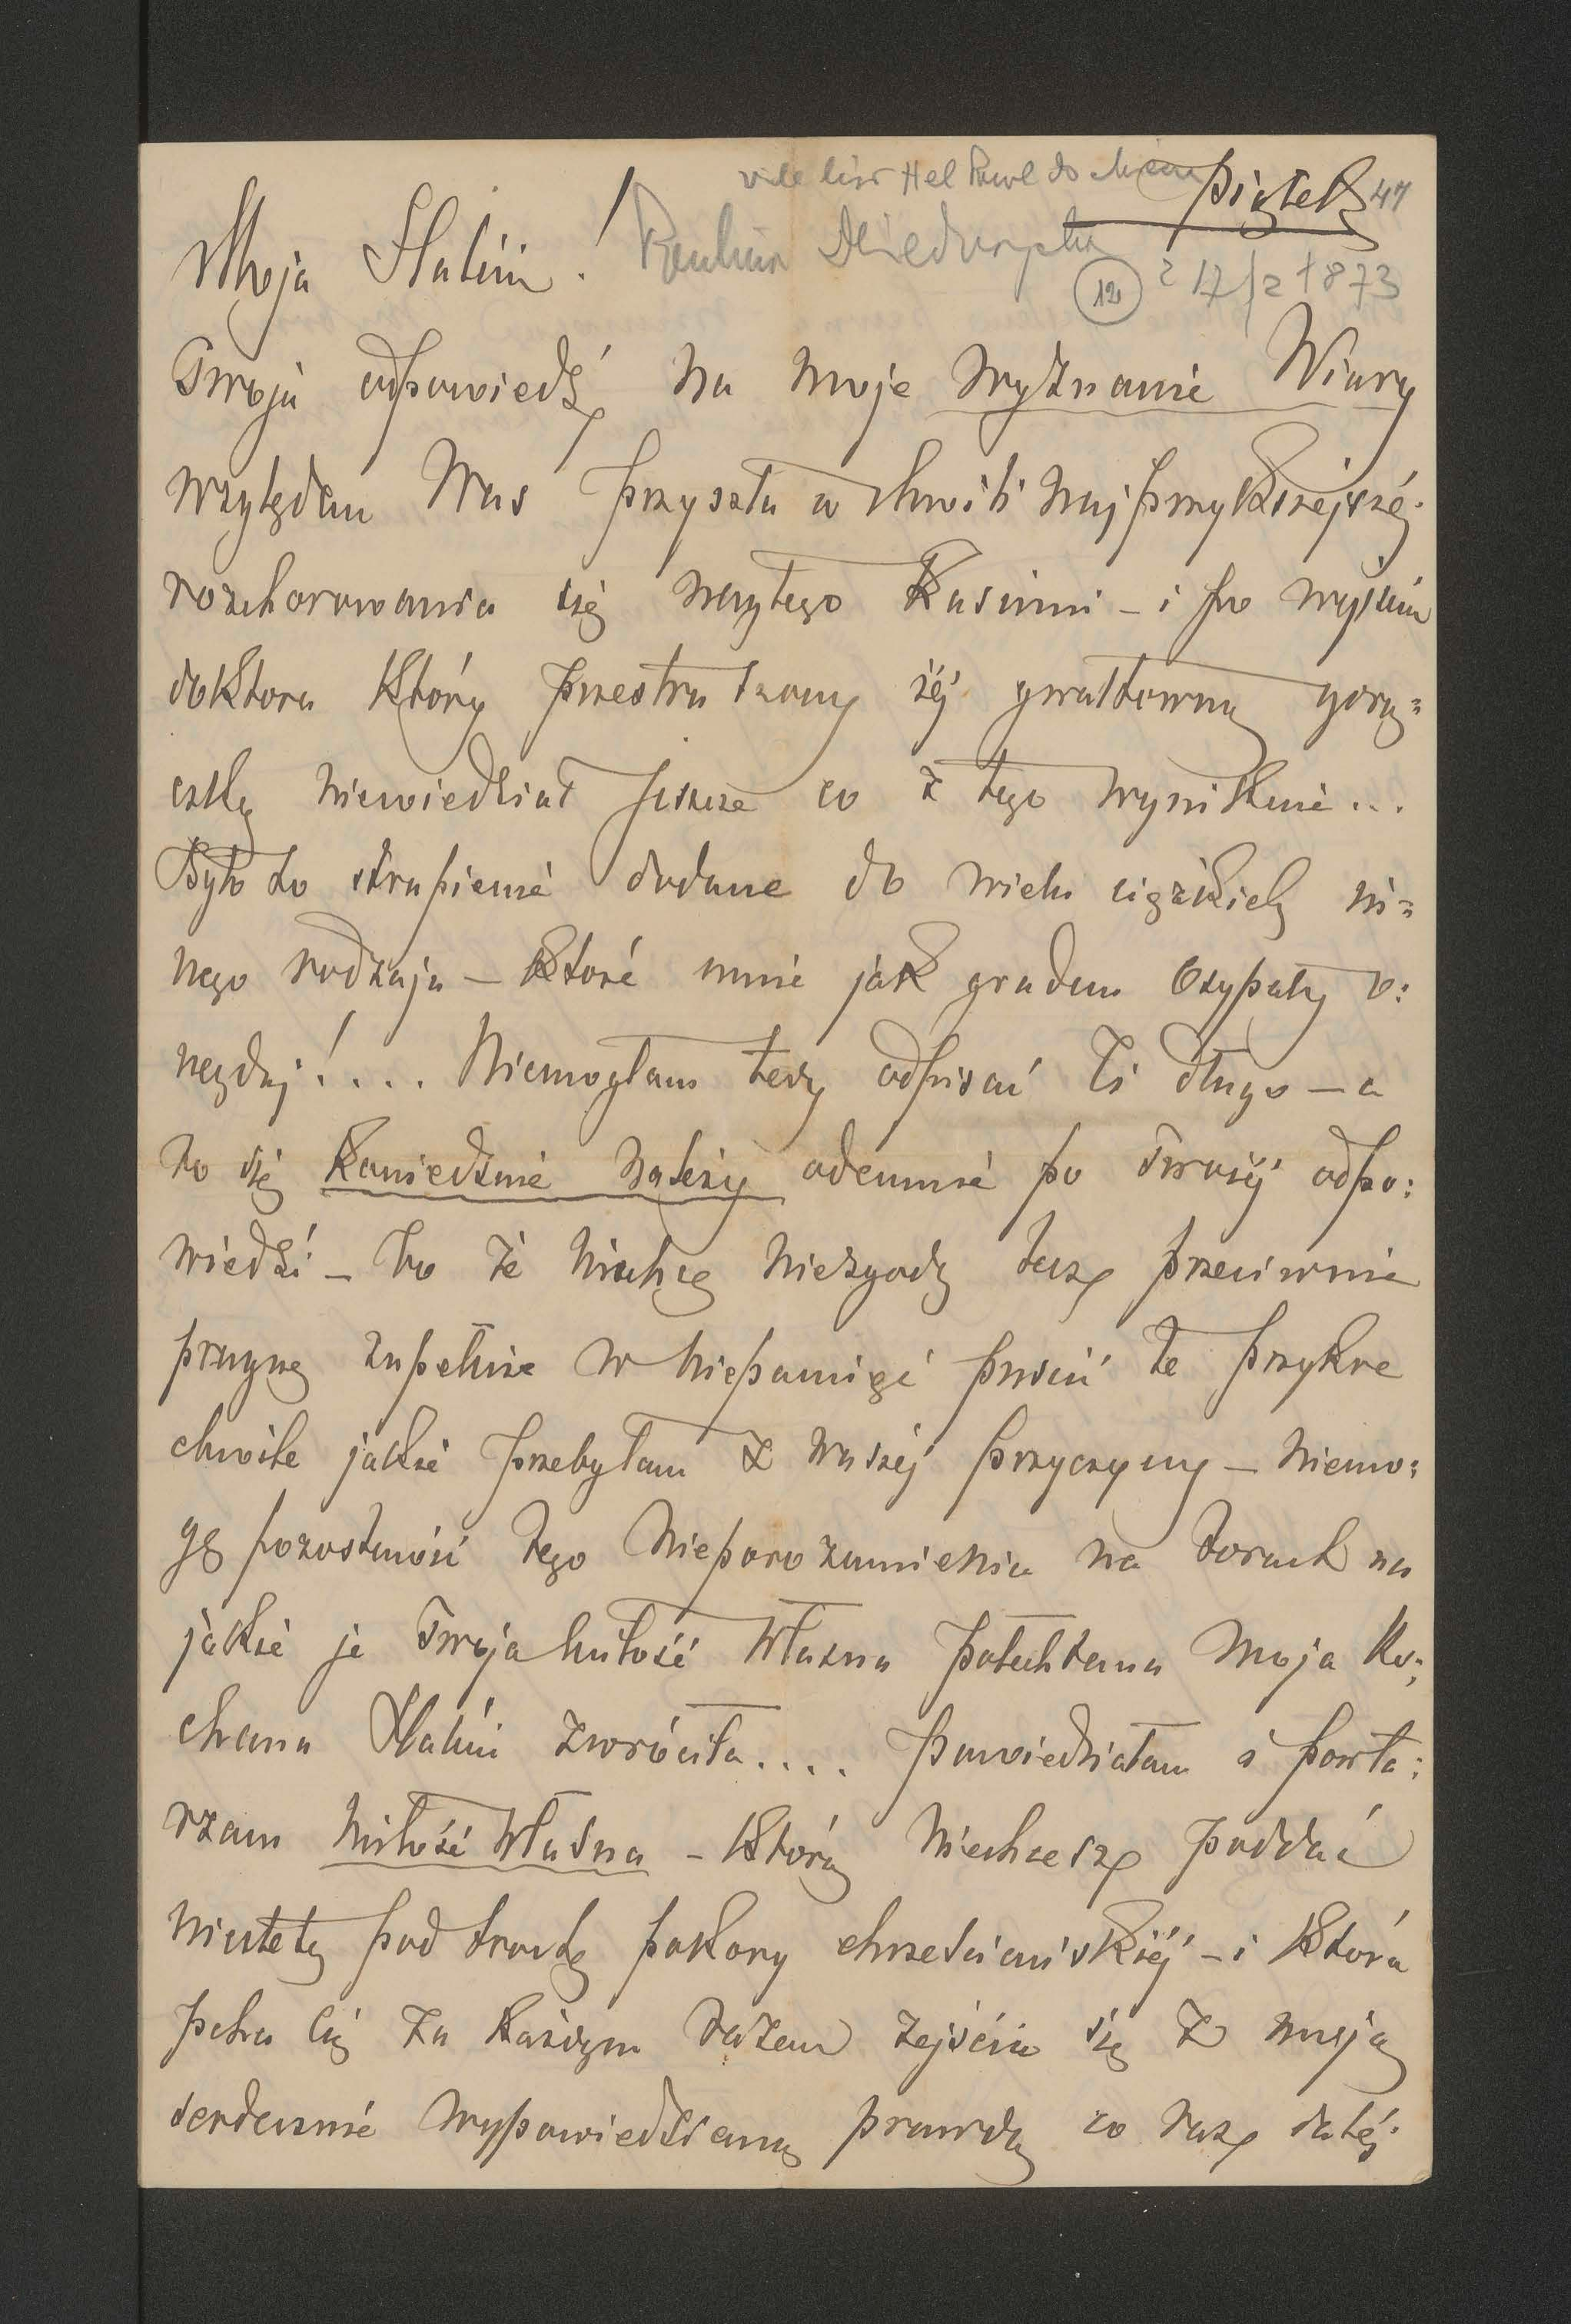 Piątek 47
12 17/2 1873
Moja Halciu!
Twoja odpowiedź na moje wyznanie Wiary
względem Was przyszła w chwili najprzykszejszéj
rozchorowania się małego Kasimi – i po wyjściu
doktora który przestraszony jéj gwałtowną gorą=
czką niewiedział jeszcze co z tego wyniknie...
Było to strapienie dodane do wielu ciężkich in=
nego rodzaju – które mnie jak gradem osypały o:
negdaj!.... Niemogłam tedy odpisać Ci długo – a
to się koniecznie należy odemnie po Twojéj odpo:
wiedzi – bo że niechcę niezgody lecz przeciwnie
pragnę zupełnie w niepamięć puścić te przykre
chwile jakie przebyłam z waszéj przyczyny – niemo:
gę pozostawić tego nieporozumienia na torach na
jakie je Twoja miłość własna połechtana moja ko:
chana Halciu zwróciła.... Powiedziałam i powta:
rzam miłość własna – którą niechcesz poddać
niestety pod pokory chrześciańskiéj – i która
pcha Cię za każdym razem zejścia się z moją
serdecznie wypowiedzianą prawdą co raz daléj